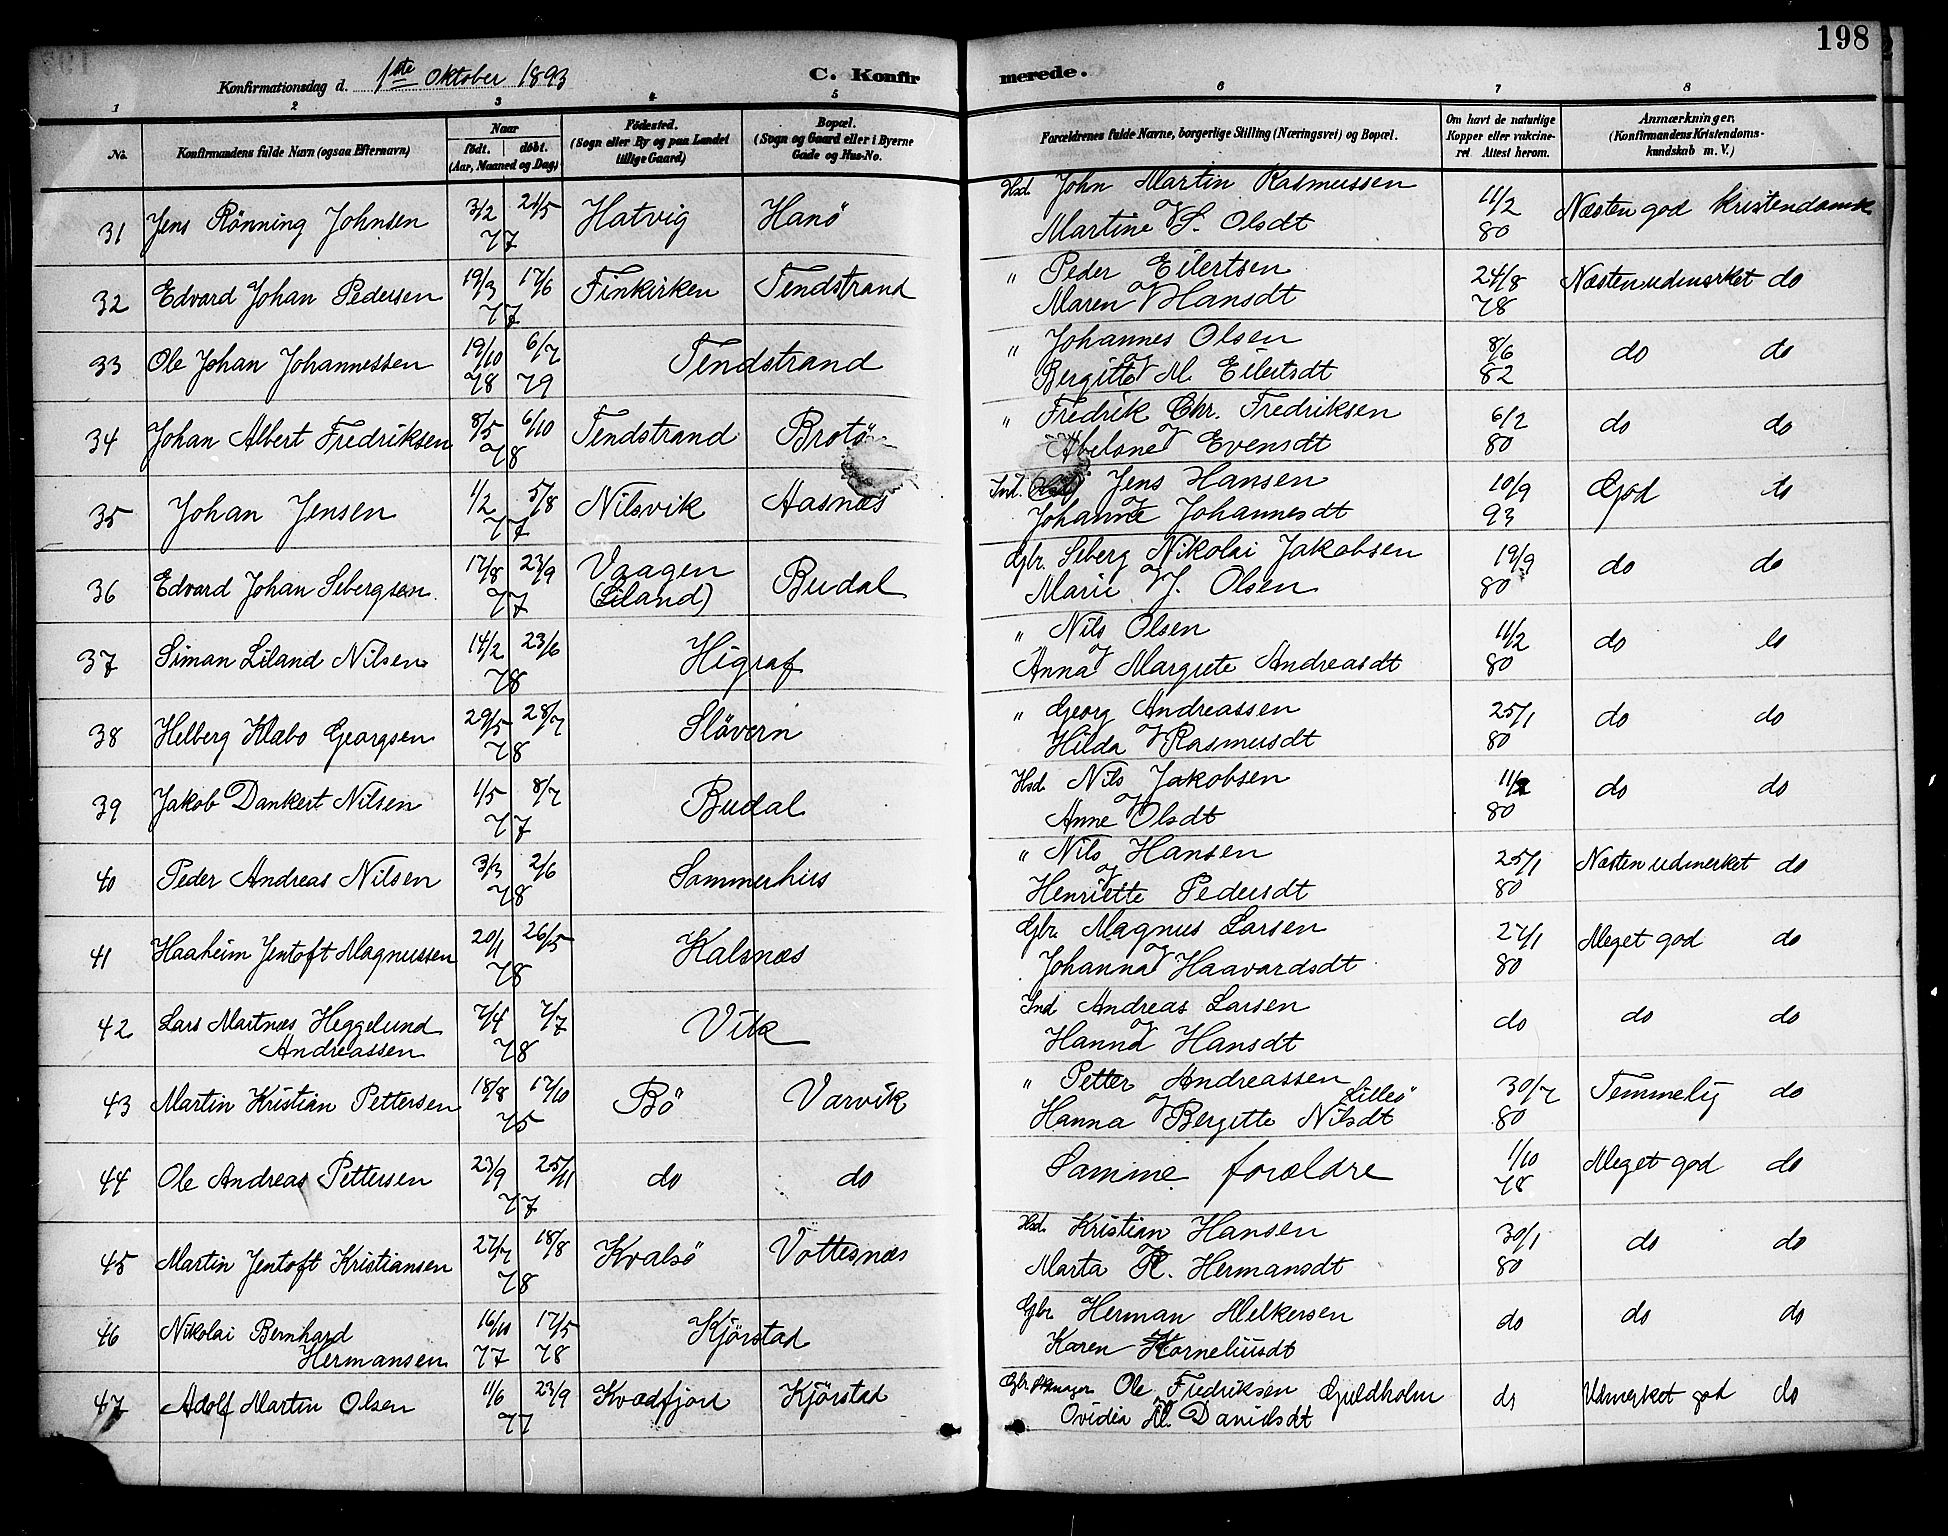 198
Konfirmationsdag d. 1ste Oktober 1893 C. Konfirmerede.
1 2 3 4 5 6 7 8
No. Konfirmandens fulde Navn (ogsaa Efternavn) Naar født. døbt. (Aar, Maaned og Dag) Fødested. (Sogn eller By og paa Landet tillige Gaard) Bopæl. (Sogn og Gaard eller i Byerne Gade og Hus-No. Forældrenes fulde Navne, borgerlige Stilling (Næringsvei) og Bopæl. Om havt de naturlige Kopper eller vakcineret. Attest herom. Anmærkninger. (Konfirmandens Kristendomskundskab m. V.)
31 Jens Rönning Johnsen 3/2 21/5 77 Hatvig Hanö Hsd. John Martin Rasmussen og Martine S. Olsdt 11/2 80 Næsten god Kristendomsk
32 Edvard Johan Pedersen 19/3 17/6 77 Finkirken Tendstrand " Peder Eilertsen og Maren Hansdt 24/8 78 Næsten udmerket do
33 Ole Johan Johannessen 19/10 78 6/7 79 Tendstrand " Johannes Olsen og Bergitte M. Eilertsdt 8/6 82 do do
34 Johan Albert Fredriksen 8/5 6/10 78 Tendstrand Brotö " Fredrik Chr. Fredriksen og Abelone Evensdt 6/2 80 do do
35 Johan Jensen 1/2 5/8 77 Nilsvik Aasnæs Ind. Jens Hansen og Johanne Johannesdt 10/9 93 God do
36 Edvard Johan Sebergsen 17/8 23/9 77 Vaagen (Liland) Budal Gbr. Seberg Nikolai Jakobsen og Marie J. Olsen 19/9 80 do do
37 Siman Liland Nilsen 14/2 23/6 78 Higraf " Nils Olsen og Anna Margrete Andreasdt 11/2 80 do do
38 Helberg Klæbo Georgsen 29/5 28/7 78 Slövern " Georg Andreassen og Hilda Rasmusdt 25/1 80 do do
39 Jakob Dankert Nilsen 1/5 8/7 77 Budal Hsd. Nils Jakobsen og Anne Olsdt 11/2 80 do do
40 Peder Andreas Nilsen 3/3 2/6 78 Sommerhus " Nils Hansen og Henriette Pedersdt 25/1 80 Næsten udmerket do
41 Haaheim Jentoft Magnussen 20/1 26/5 78 Kalsnæs Gbr. Magnus Larsen og Johanna Haavardsdt 27/1 80 Meget god do
42 Lars Martnæs Heggelund Andreassen 7/4 7/7 78 Vik Ind Andreas Larsen og Hanna Hansdt do do do
43 Martin Kristian Pettersen 18/8 17/10 75 Bö Varvik " Petter Andreassen Lilleö og Hanna Bergitte Nilsdt 30/7 80 Temmelig do
44 Ole Andreas Pettersen 23/9 25/11 77 do do Samme forældre 1/10 78 Meget god do
45 Martin Jentoft Kristiansen 27/7 18/8 78 Kvalsö Vottesnæs Hsd. Kristian Hansen og Marta Hermansdt 30/1 80 do do
46 Nikolai Bernhard Hermansen 16/10 77 17/5 78 Kjörstad Gbr. Herman Melkersen Karen Korneliusdt do do do
47 Adolf Martin Olsen 11/6 23/9 77 Kvædfjord Kjörstad Gbr. Ole Fredriksen Guldholm Ovidia M. Danielsdt do Udmerket god do